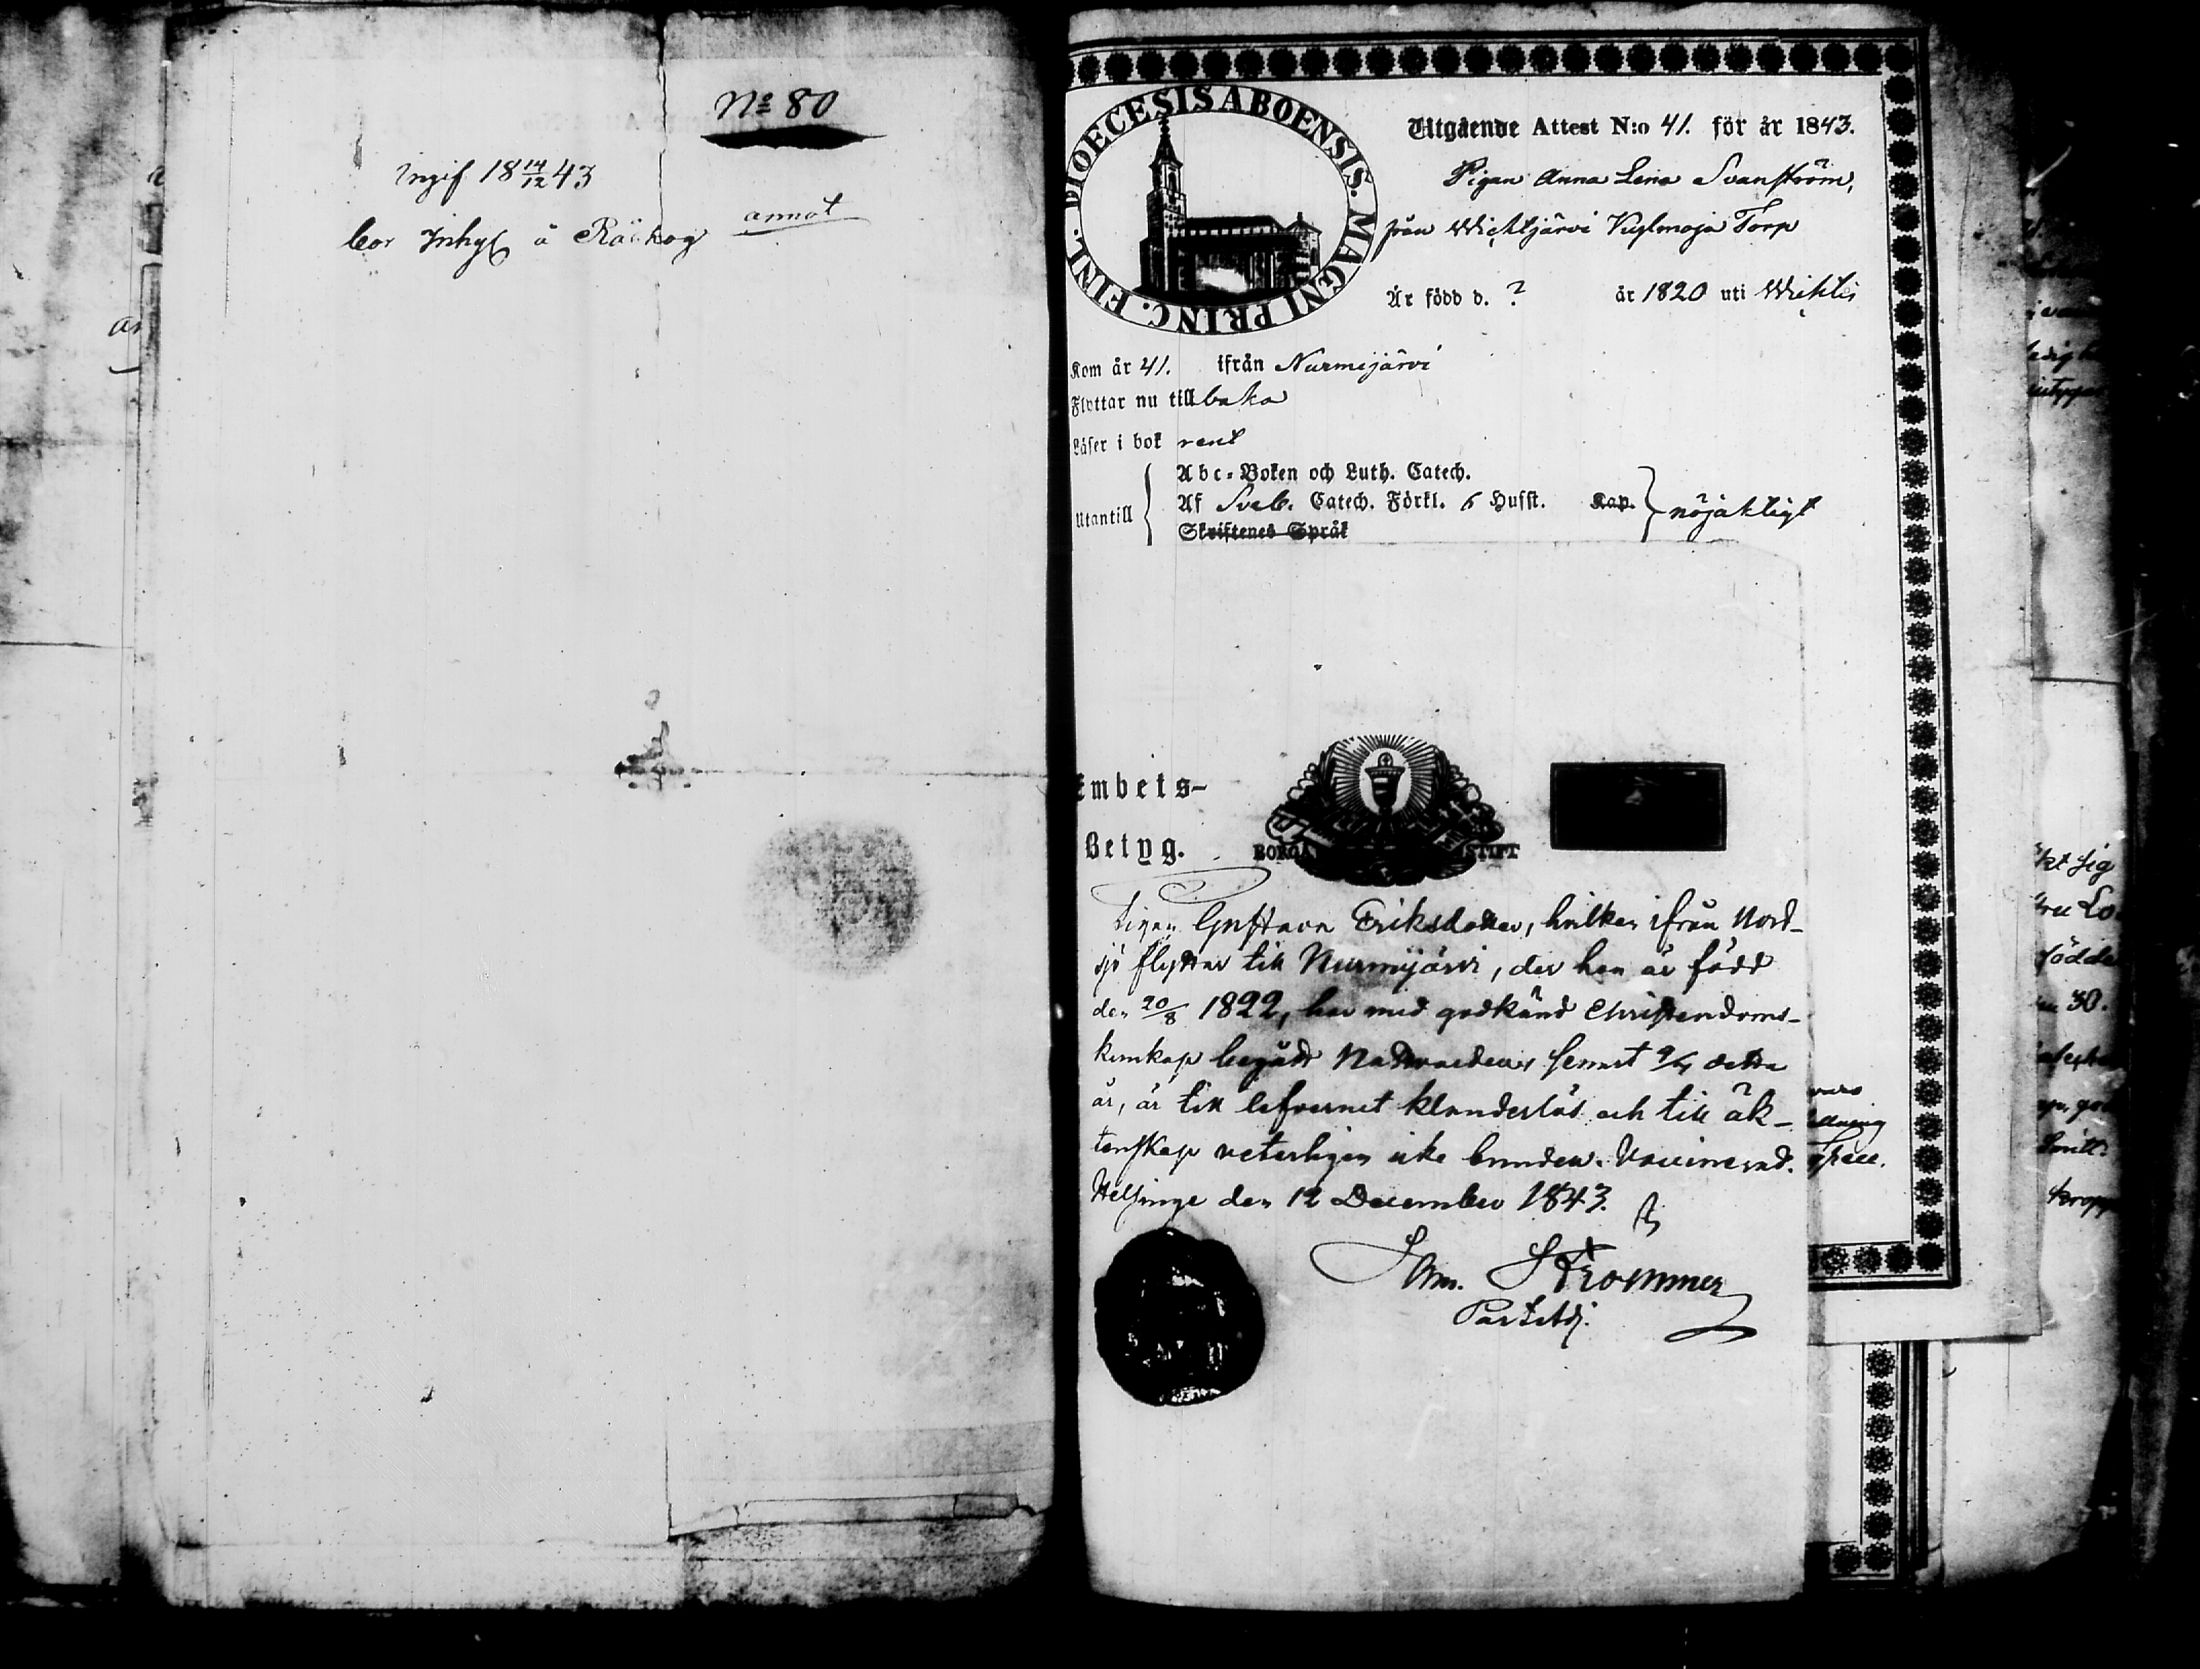 No 80
Ingif 18 14/12 43
bor Inhys å Räckog
annot
DIOECESIS ABOENSIS. MAGNI PRINC. FINL.
Utgående Attest N:o 41. för år 1843.
Pigan Anna Lena Svanström,
från Wichtjärvi Torp
Är född d. ? år 1820 uti Wichtis
Kom år 41. ifrån Nurmijärvi
Flyttar nu tillbaka
Läser i bok rent
Utantill
Abc-Boken och Luth. Catech.
Af Sveb. Catech. Förkl. 6 Husst. Kap.
Skriftenes Språk
nöjaktigt
Embets-
Betyg.
BORGÅ STIFT
Pigan Gustava Eriksdotter, hvilken ifrån Nord-
sjö flyttar till Nurmijärvi, der hon är född
den 20/8 1822, har med godkänd Christendoms-
kunskap begått Nattvarden senast 9/4 detta
år, är till lefvernet klanderlös och till äk-
tenskap veterligen icke bunden. Vaccinerad.
Helsinge den 12 December 1843.
Sam. Strömmer
Past. Adj.
kt sig
födde
30.